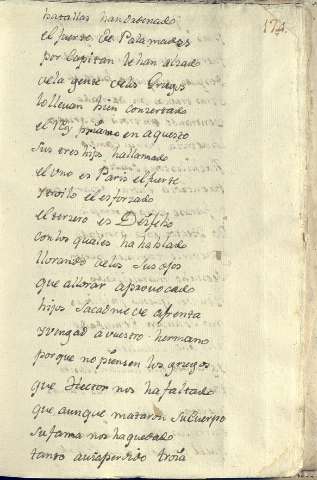 174.
batallas han ordenado
el fuerte de Palamades
por Capitan le han alzado
de la gente de los Griegos
lo lleuan bien conzertado
el Rey priamo en aquesto
sus tres hijos ha llamado
el vno es Paris el fuerte
ytroilo el esforzado
el terzero es Deifebo
con los quales ha hablado
llorando de los sus ojos
que allorar a prouocado
hijos sacadme de afrenta
y vengad a vuestro hermano
porque no piensen los griegos
que Hector nos ha faltado
que aunque mataron su cuerpo
su fama nos ha quedado
tanto auia perdido troia